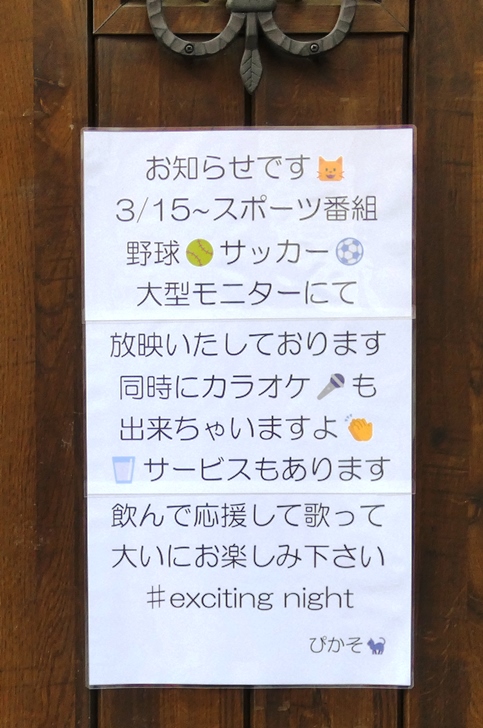 お知らせです😺
3/15~スポーツ番組
野球🥎サッカー⚽
大型モニターにて
放映いたしております
同時にカラオケ🎤も
出来ちゃいますよ👏
🥛サービスもあります
飲んで応援して歌って
大いにお楽しみ下さい
#exciting night
ぴかそ🐈‍⬛